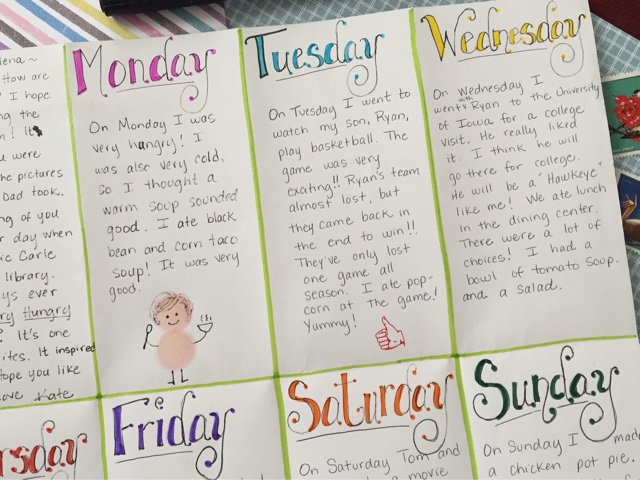 How are
I hope
ng the
n! It
u were
he pictures
Dad took.
ng of you
r day when
ric Carle
library.
ys ever
ry Hungry
? It's one
ites. It inspired
ope you like
ove Kate
Monday
On Monday I was
very hungry! I
was also very cold,
so I thought a
warm soup sounded
good. I ate black
bean and corn taco
soup! It was very
good.
Tuesday
On Tuesday I went to
watch my son, Ryan,
play basketball. The
game was very
exating!! Ryan's team
almost lost, but
they came back in
the end to win!!
They've only lost
one game all
season. I ate pop-
corn at The game!
Yummy!
Wednesday
On Wednesday I
went with Ryan to the University
of Iowa for a college
visit. He really liked
it. I think he will
go there for college.
He will be a "Hawkeye"
like me! We ate lunch
in the dining center.
There were a lot of
choices! I had a
bowl of tomato soup
and a salad.
rsday
Friday
Saturday
On Saturday Tom and
a movie
Sunday
On Sunday I made
a chicken pot pie.